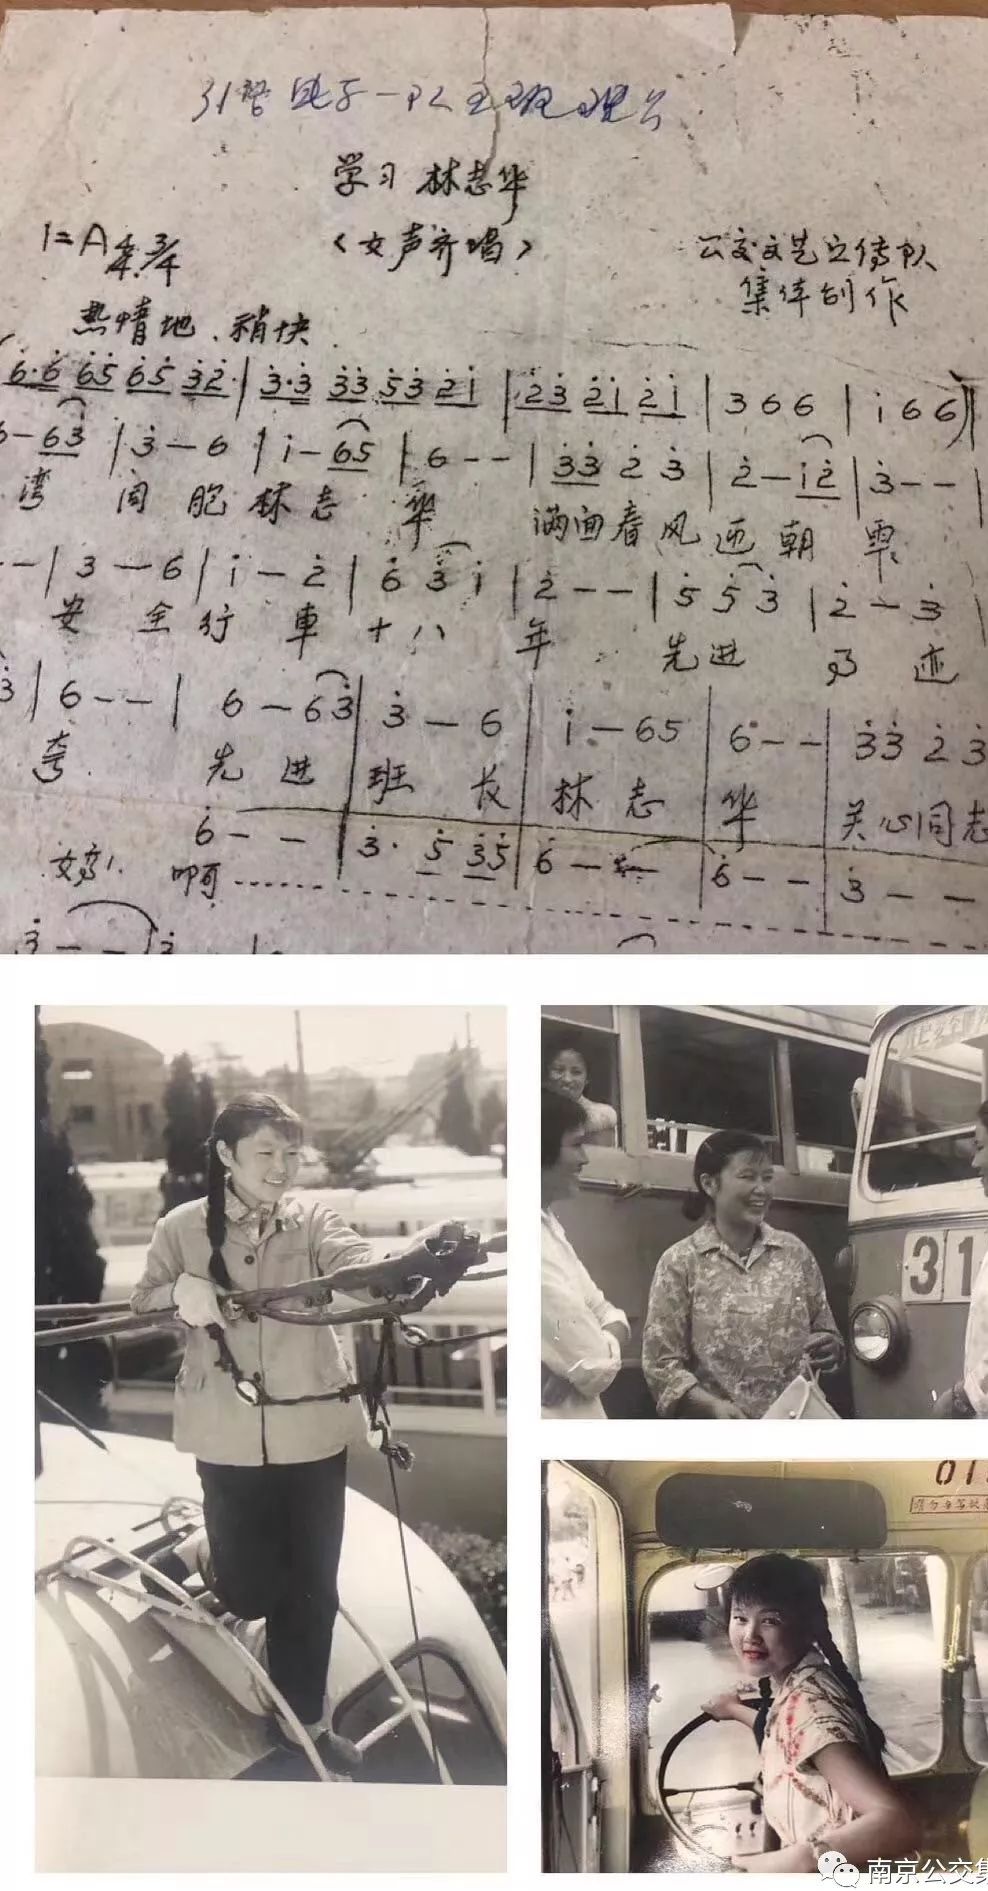 学习林志华
1=A 4/4 3/4 〈女声齐唱〉 公交文艺宣传队
集体创作
热情地、稍快
6·6 65 65 32 | 3·3 33 53 21 | 23 21 21 | 3 6 6 | i 6 6) |
6 - 63 | 3 - 6 | i - 65 | 6 - - | 33 2 3 | 2 - i2 | 3 - - |
湾 同胞 林志 华 满面春风迎朝
- - | 3 - 6 | i - 2 | 6 3 i | 2 - - | 5 5 3 | 2 - 3
安全行車十八年 先进 迹
3 | 6 - - | 6 - 63 | 3 - 6 | i - 65 | 6 - - | 33 2 3
夸 先进 班长 林志 华 关心同志
6 - - | 3· 5 35 | 6 - - | 6 - - | 3 - -
啊
3 - - | 3
31
01
南京公交集